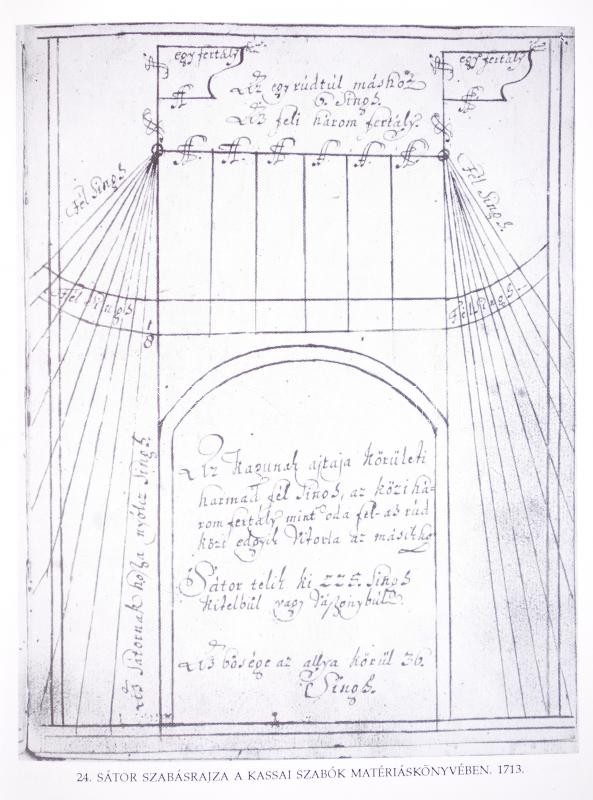 egy fertály
egy fertály
Az egy rúdtúl máshoz
6. Singh.
Az feli három fertály.
Fél Singh
Fél Singh.
Fél Singh
Fél Singh
8
Az Sátornak hossza nyólcz Singh.
Az Kapunak ajtaja körületi
harmad fél Singh, az közi há=
rom fertály mint oda fel- az rúd
közi edgyik Vitorla az másikho
Sátor telik ki 225. Singh
Kitelbül vagy Vászonybúl.
Az bősége az allya körül 36.
Singh.
24. SÁTOR SZABÁSRAJZA A KASSAI SZABÓK MATÉRIÁSKÖNYVÉBEN. 1713.